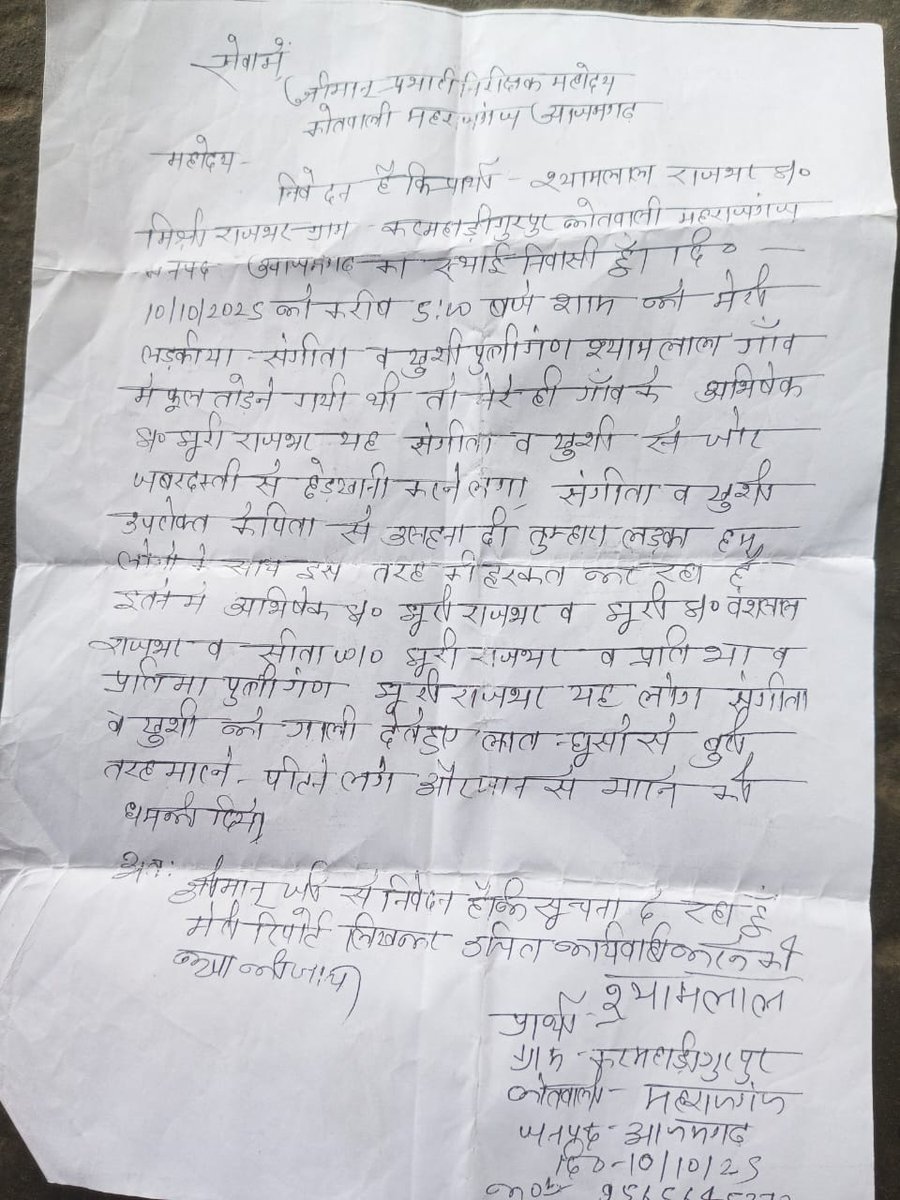 सेवामें
श्रीमान् प्रभारी निरीक्षक महोदय
कोतवाली महराजगंज आजमगढ़
महोदय -
निवेदन है कि प्रार्थी - श्यामलाल राजभर S/०
मिश्री राजभर ग्राम - कटमहाड़ीगुरपुर कोतवाली महराजगंज
जनपद आजमगढ का स्थाई निवासी हूँ। दि० -
10/10/2025 को करीब 5:00 बजे शाम को मेरी
लड़कीया - संगीता व खुशी पुत्रीगंण श्यामलाल गाँव
मे फूल तोड़ने गयी थी तो मेरे ही गाँव के अभिषेक
S/० झूरी राजभर यह संगीता व खुशी से जोर
जबरदस्ती से छेड़खानी करने लगा संगीता व खुशी
उपरोक्त के पिता से उलहना दी तुम्हारा लड़का हम
लोगो के साथ इस तरह की हरकत कर रहा है
इतने मे अभिषेक S/० झूरी राजभर व झूरी S/० वंशलाल
राजभर व सीता W/O झूरी राजभर व प्रतिभा व
प्रतिमा पुत्रीगंण झूरी राजभर यह लोग संगीता
व खुशी को गाली देते हुए लात - घूसो से बुरी
तरह मारने - पीटने लगे और जान से मारने की
धमकी दिये।
अतः
श्रीमान् जी से निवेदन है कि सूचना दे रहा हूँ
मेरी रिपोर्ट लिखकर उचित कार्यवाही करने की
कृपा की जाय।
प्रार्थी - श्यामलाल
ग्राम - कटमहाड़ीगुरपुर
कोतवाली - महराजगंज
जनपद - आजमगढ
दि० - 10/10/25
मो०न०